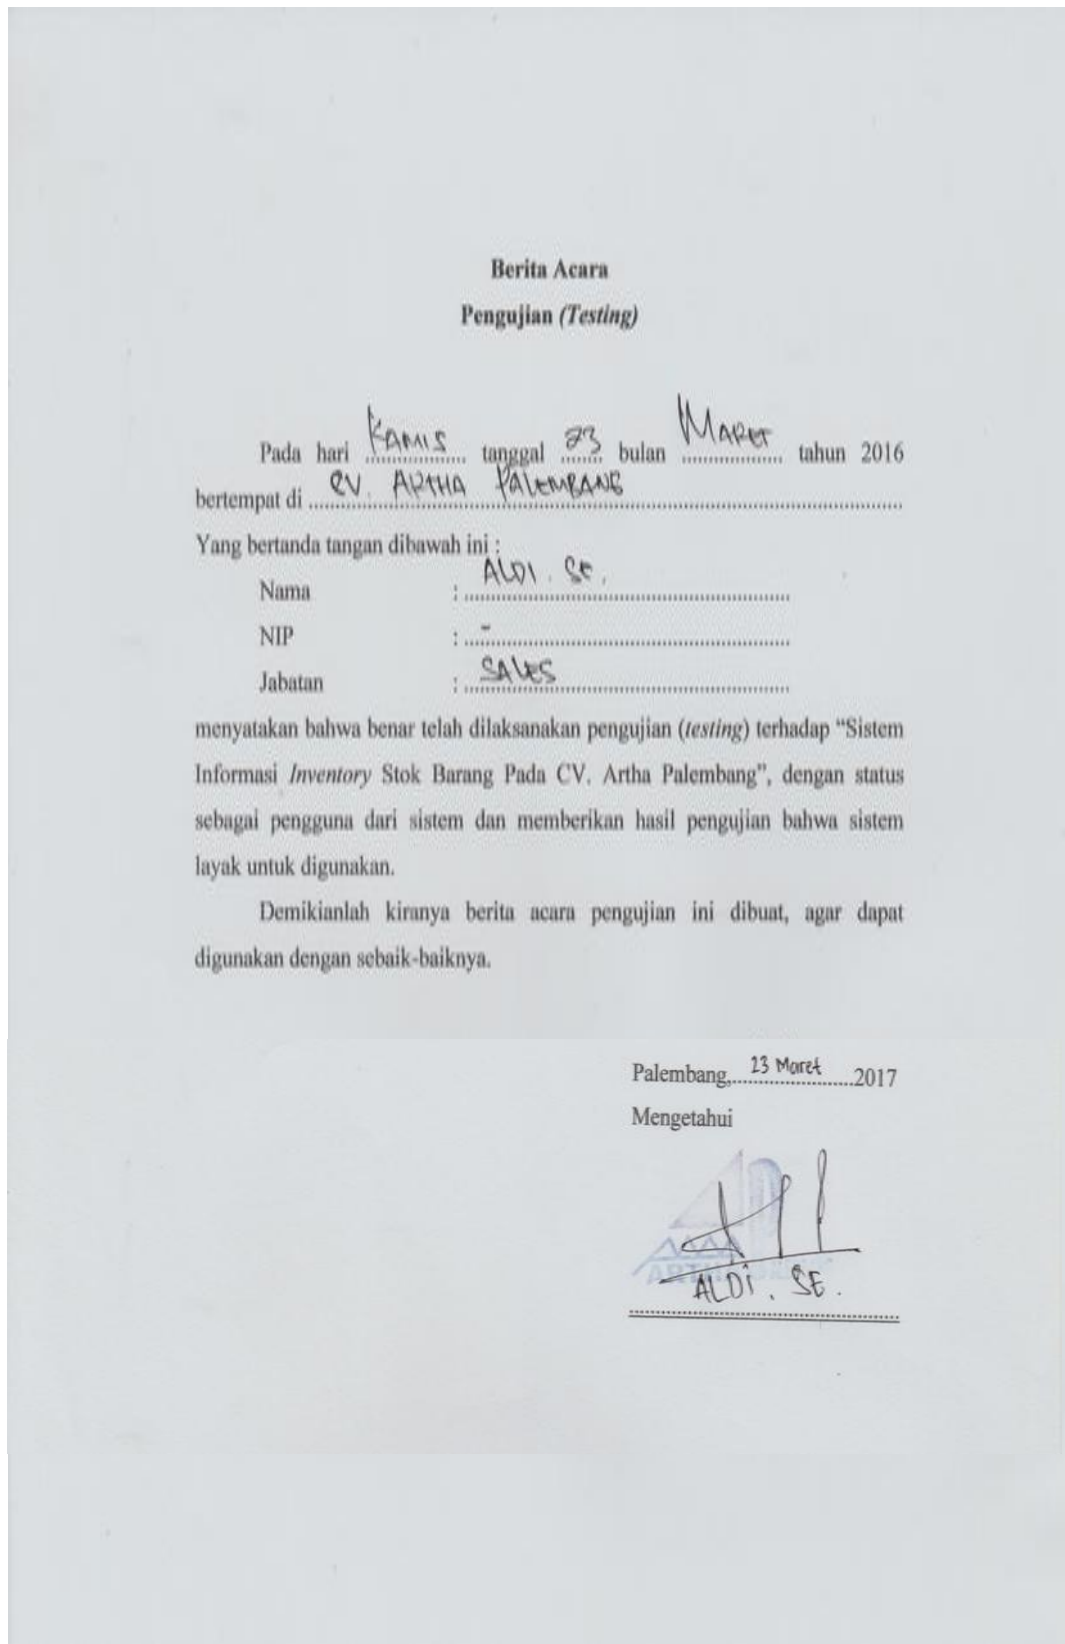 Berita Acara
Pengujian (Testing)
Pada hari KAMIS tanggal 23 bulan MARET tahun 2016
bertempat di CV. ARTHA PALEMBANG
Yang bertanda tangan dibawah ini :
Nama : ALDI . SE.
NIP : -
Jabatan : SALES
menyatakan bahwa benar telah dilaksanakan pengujian (testing) terhadap “Sistem
Informasi Inventory Stok Barang Pada CV. Artha Palembang”, dengan status
sebagai pengguna dari sistem dan memberikan hasil pengujian bahwa sistem
layak untuk digunakan.
Demikianlah kiranya berita acara pengujian ini dibuat, agar dapat
digunakan dengan sebaik-baiknya.
Palembang, 23 Maret 2017
Mengetahui
ALDI . SE .